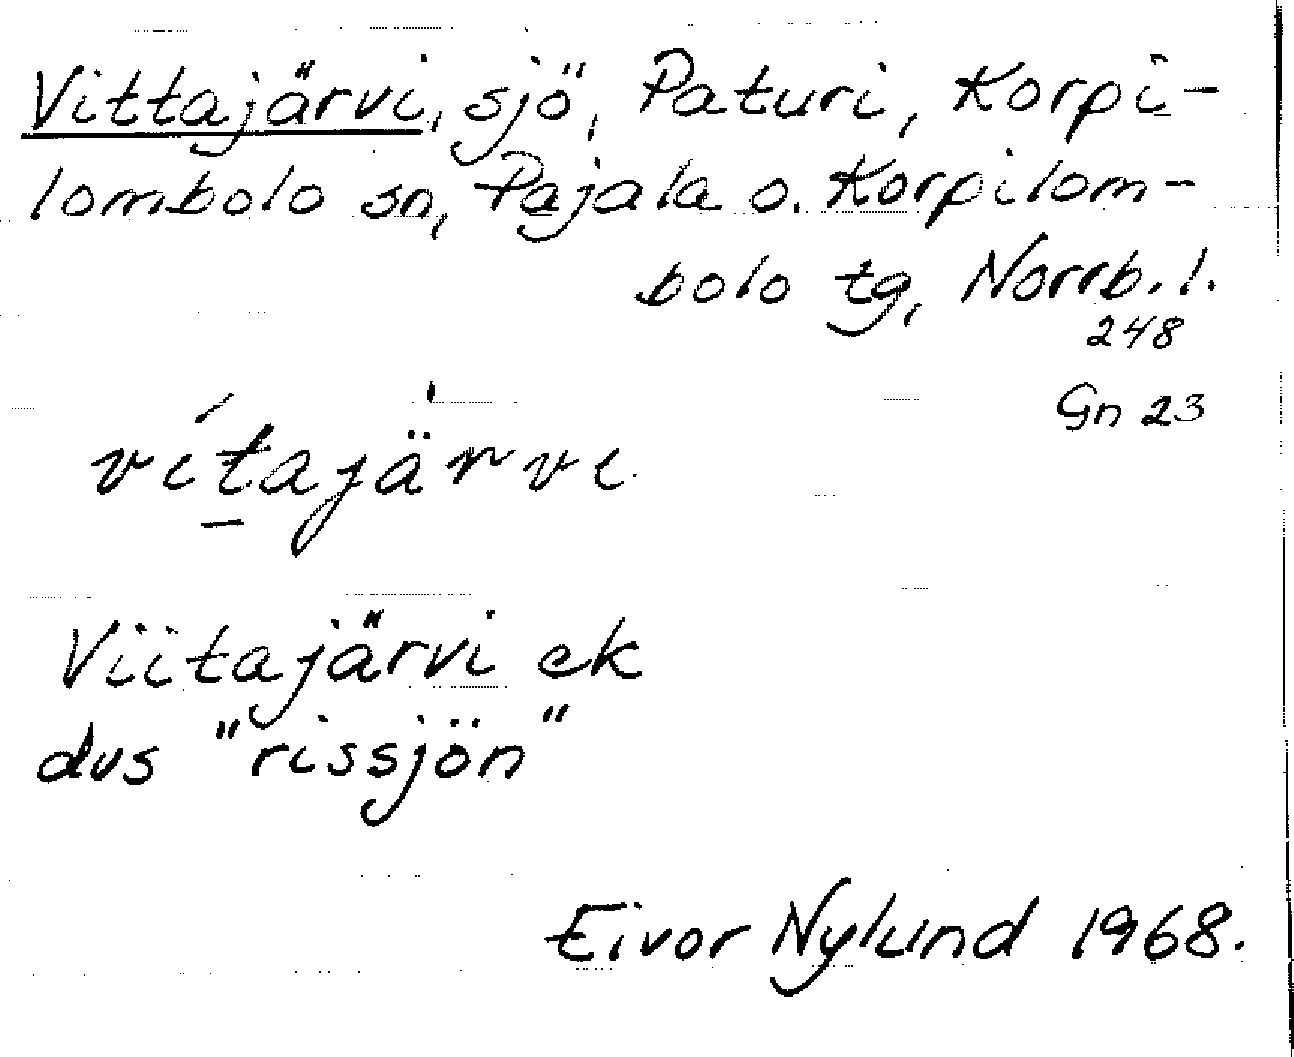 Vittajärvi, sjö, Paturi, Korpi-
lombolo sn, Pajala o. Korpilom-
bolo tg, Norrb. l.
248
Gn 23
vítajärvi
Viitajärvi ek
dvs "rissjön"
Eivor Nylund 1968.